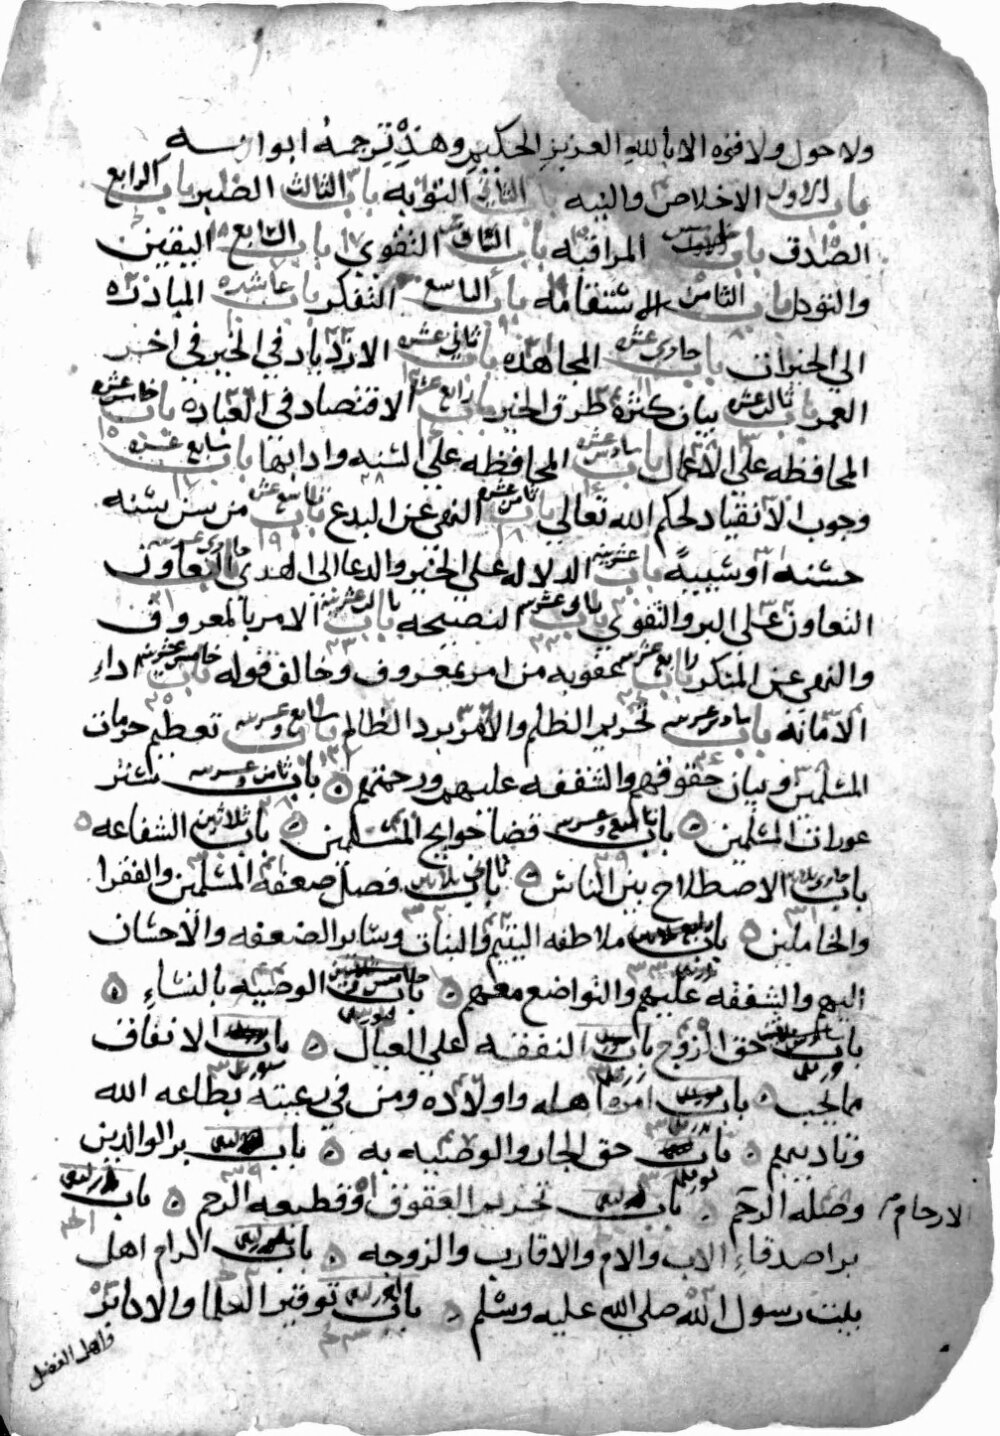 ولا حول ولا قوه الا بالله العزيز الحكيم وهذه ترجمة ابوابه
باب الاول الاخلاص والنيه باب الثاني التوبه باب الثالث الصبر باب الرابع
الصدق باب المراقبه باب التقوي باب اليقين
والتوكل باب الثامن الاستقامه باب التاسع التفكر باب عاشره المبادره
الي الخيرات باب حادي عشره المجاهده باب ثاني عشره الازدياد في الخير في اخر
العمر باب ثالث عشره بيان كثرة طرق الخير باب رابع عشره الاقتصاد في العباده باب خامس عشره
المحافظه علي الاعمال باب سادس عشره المحافظه علي السنه وادابها باب سابع عشره
وجوب الانقياد لحكم الله تعالي باب ثامن عشره النهي عن البدع باب تاسع عشره من سن سنه
حسنه او سييةً باب عشرين الدلاله علي الخير والدعا الي الهدي التعاون
التعاون علي البر والتقوي باب النصيحه باب الامر بالمعروف
والنهي عن المنكر باب عقوبه من امر بمعروف وخالف قوله باب خامس عشرين اداء
الامانه باب تحريم الظلم والامر برد المظالم باب تعظيم حرمات
المسلمين وبيان حقوقهم والشفقه عليهم ورحمتهم ٥ باب ستر
عورات المسلمين ٥ باب قضا حوايج المسلمين ٥ باب ثلاثين الشفاعه ٥
باب الاصطلاح بين الناس ٥ باب فضل ضعفة المسلمين والفقرا
والخاملين ٥ باب ملاطفه اليتيم والبنات وساير الضعفه والاحسان
اليهم والشفقه عليهم والتواضع معهم ٥ باب الوصيه بالنساء ٥
باب حق الزوج باب النفقه علي العيال ٥ باب الانفاق
مما يحب ٥ باب امره اهله واولاده ومن في رعيته بطاعه الله
وتاديبهم ٥ باب حق الجار والوصيه به ٥ باب بر الوالدين
وصله الرحم الارحام ٥ باب تحريم العقوق وقطيعه الرحم ٥ باب
بر اصدقاء الاب والام والاقارب والزوجه ٥ باب اكرام اهل
بيت رسول الله صلي الله عليه وسلم ٥ باب توقير العلما والاكابر
واهل الفضل